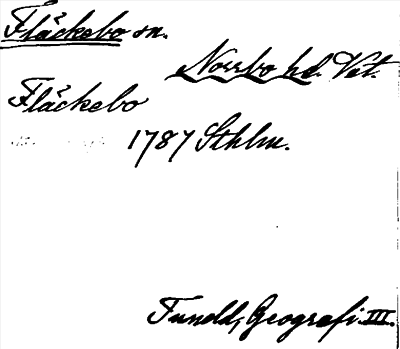 Fläckebo sn.
Norrbo hd. Vstl.
Fläckebo
1787 Sthlm.
Tuneld, Geografi III.